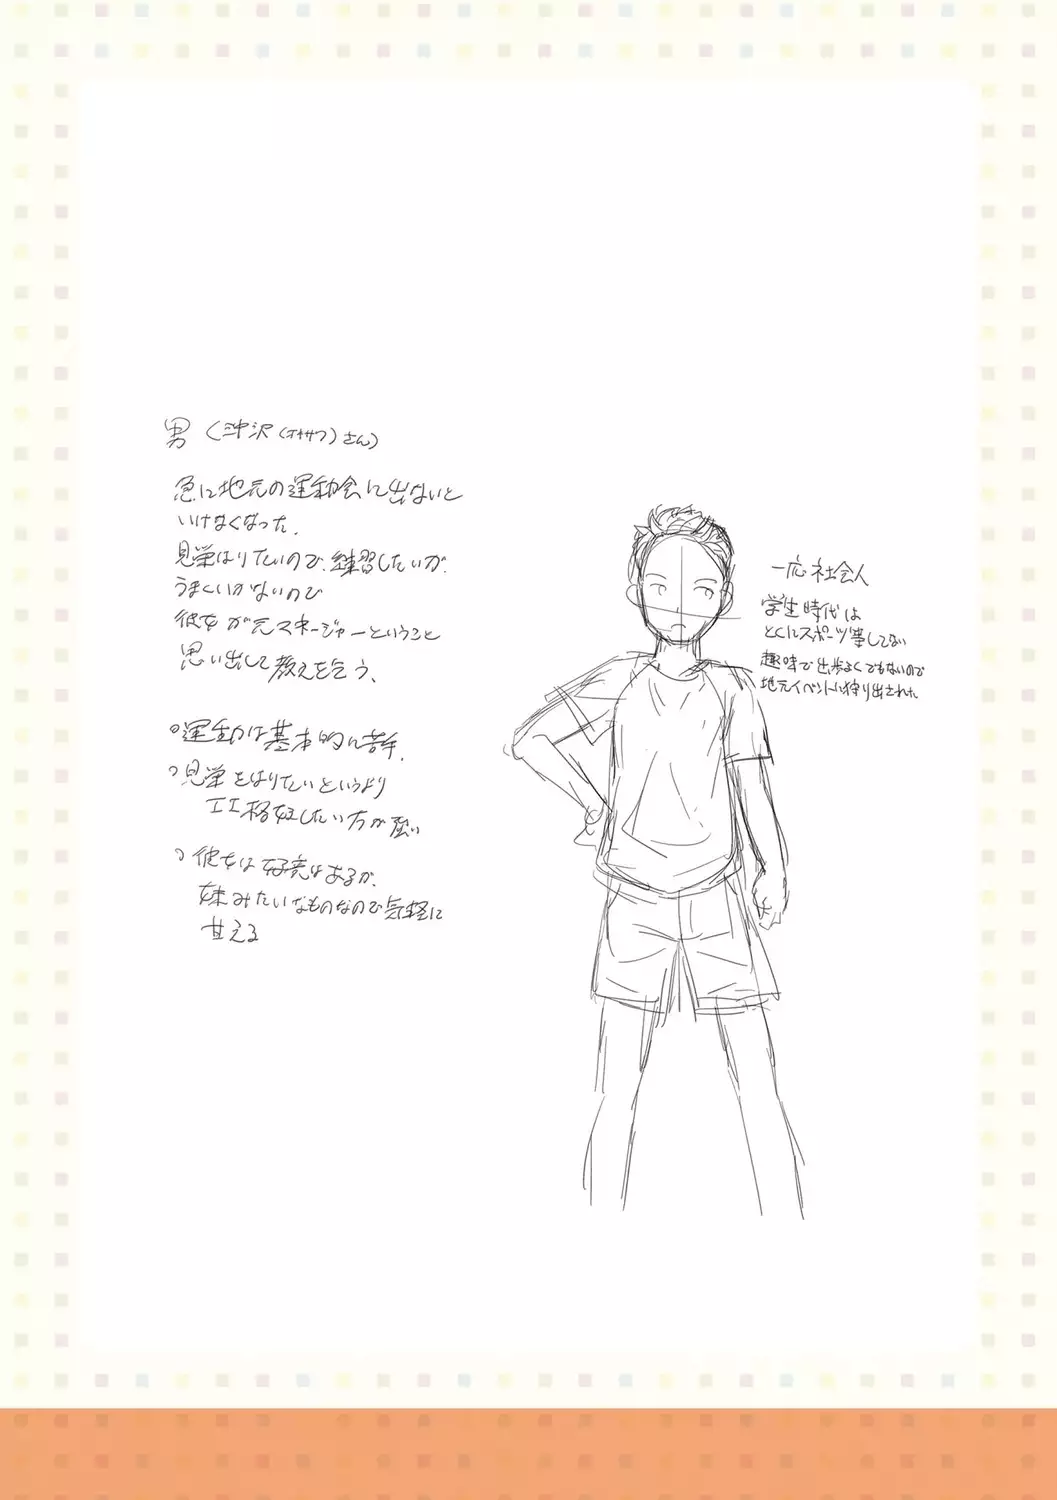 男 (沖沢(オキサワ)さん)
急に地元の運動会に出ないと
いけなくなった.
見栄はりたいので、練習したいが.
うまくいかないので
彼女が元マネージャーということ
思い出して教えを乞う、
○運動は基本的に苦手.
○見栄をはりたいというより
エエ格好したい方が強い
○彼女は好意はあるが.
妹みたいなものなので気軽に
甘える
一応社会人
学生時代は
とくにスポーツ等してない
趣味で出歩くでもないので
地元イベントに狩り出された